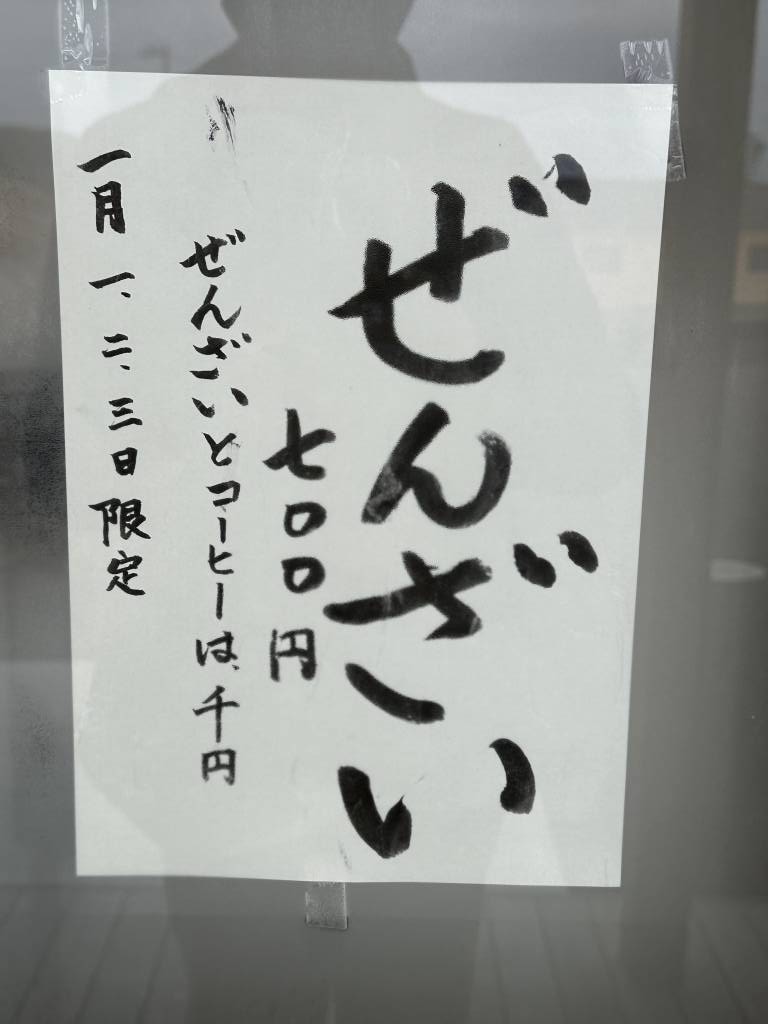 ぜんざい
七〇〇円
ぜんざいとコーヒーは、千円
一月一、二、三日限定